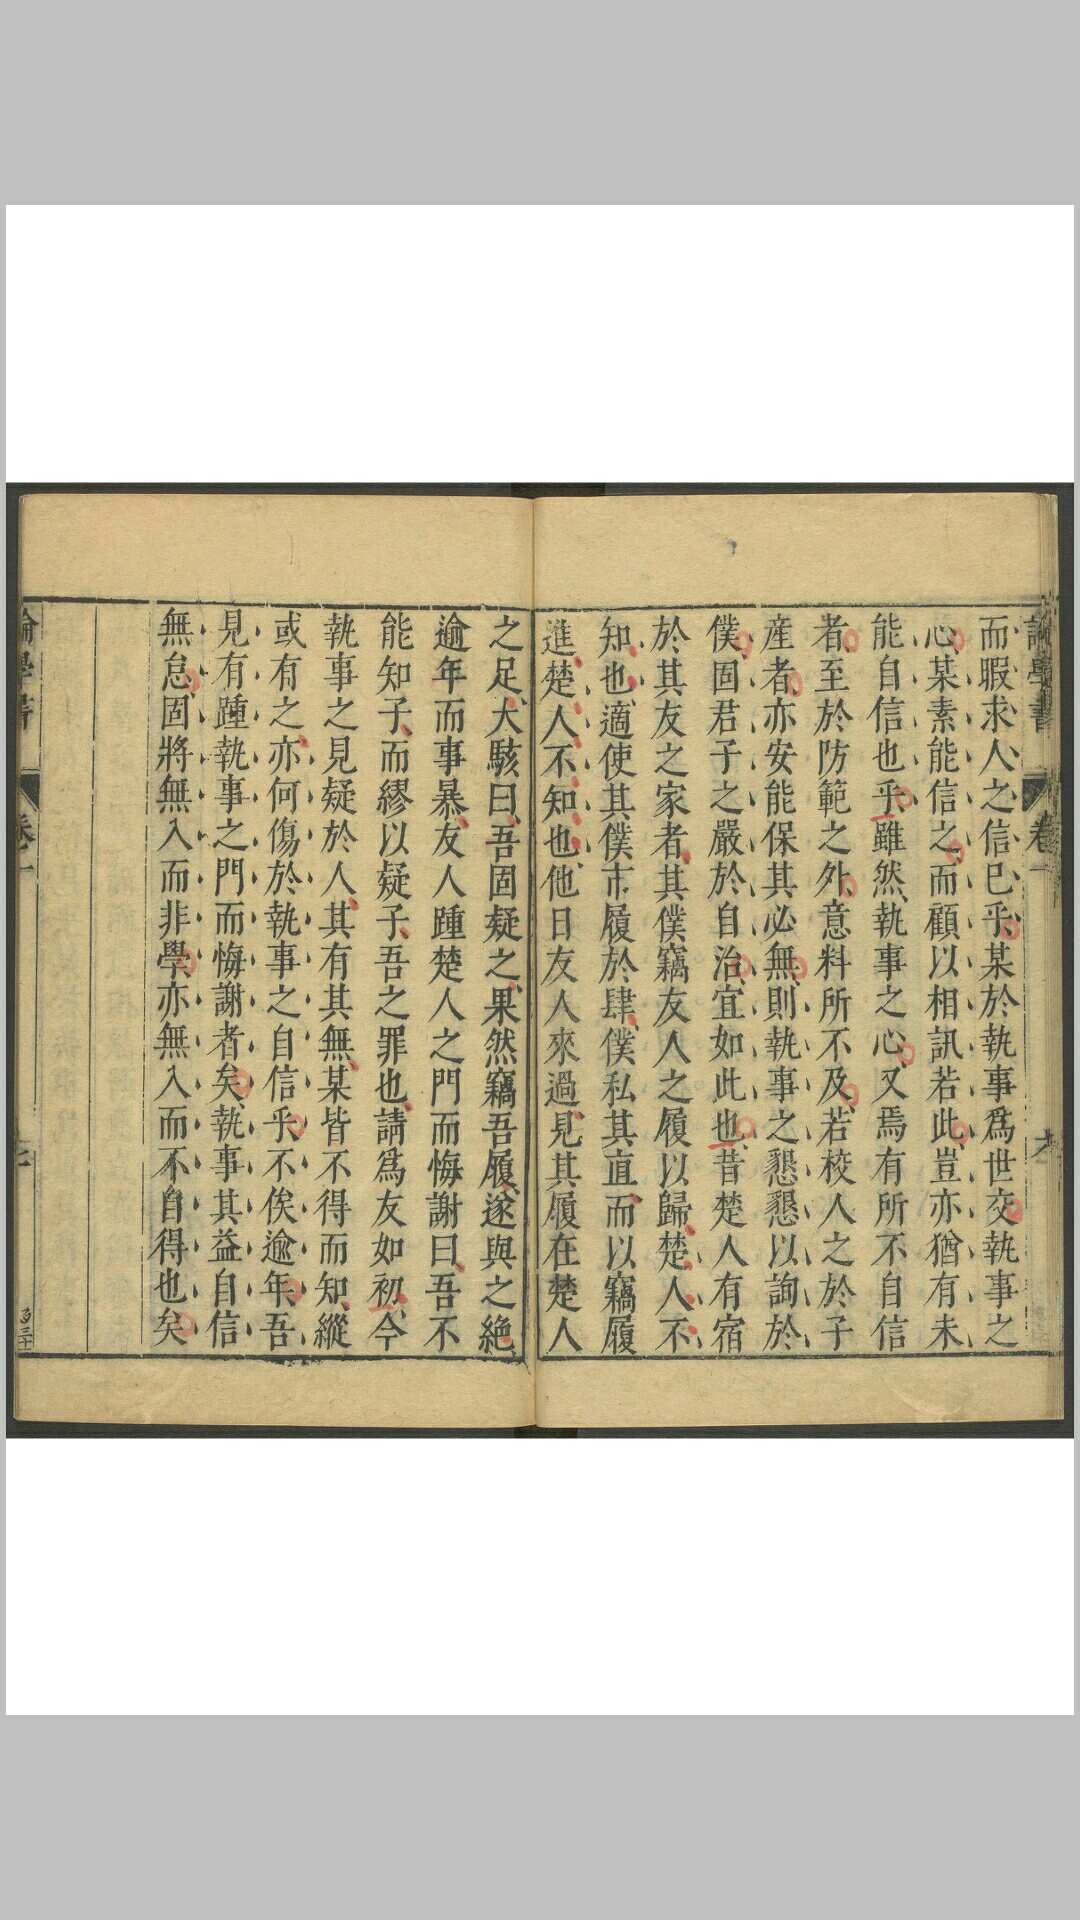 論學書 卷一
而暇求人之信已乎某於執事爲世交執事之
心某素能信之而顧以相訊若此豈亦猶有未
能自信也乎雖然執事之心又焉有所不自信
者至於防範之外意料所不及若校人之於子
産者亦安能保其必無則執事之懇懇以詢於
僕固君子之嚴於自治宜如此也昔楚人有宿
於其友之家者其僕竊友人之履以歸楚人不
知也適使其僕市履於肆僕私其直而以竊履
進楚人不知也他日友人來過見其履在楚人
之足大駭曰吾固疑之果然竊吾履遂與之絶
逾年而事暴友人踵楚人之門而悔謝曰吾不
能知子而繆以疑子吾之罪也請爲友如初今
執事之見疑於人其有其無某皆不得而知縱
或有之亦何傷於執事之自信乎不俟逾年吾
見有踵執事之門而悔謝者矣執事其益自信
無怠固將無入而非學亦無入而不自得也矣
論學書 卷一